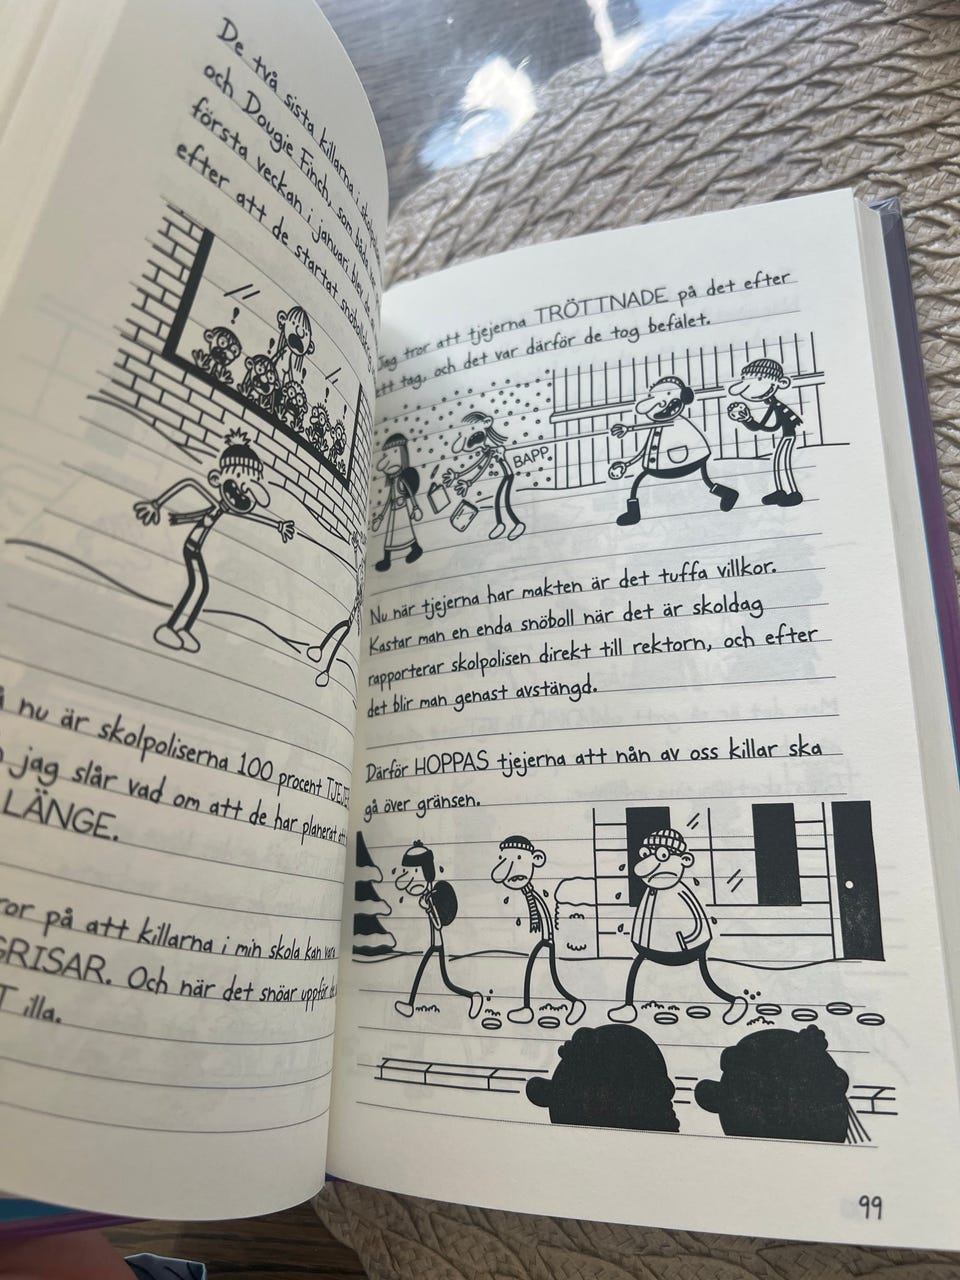 De två sista killarna i
och Dougie Finch, som båda
första veckan i januari, blev
efter att de startat
! ! ! !
å nu är skolpoliserna 100 procent TJEJER
jag slår vad om att de har planerat
LÄNGE.
ror på att killarna i min skola kan vara
GRISAR. Och när det snöar uppför
T illa.
Jag tror att tjejerna TRÖTTNADE på det efter
ett tag, och det var därför de tog befälet.
BAPP
Nu när tjejerna har makten är det tuffa villkor.
Kastar man en enda snöboll när det är skoldag
rapporterar skolpolisen direkt till rektorn, och efter
det blir man genast avstängd.
Därför HOPPAS tjejerna att nån av oss killar ska
gå över gränsen.
99